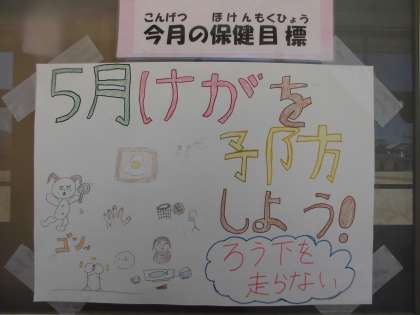 こんげつ ほけんもくひょう
今月の保健目標
5月けがを
予防
しよう!
ゴンッ
ろう下を
走らない